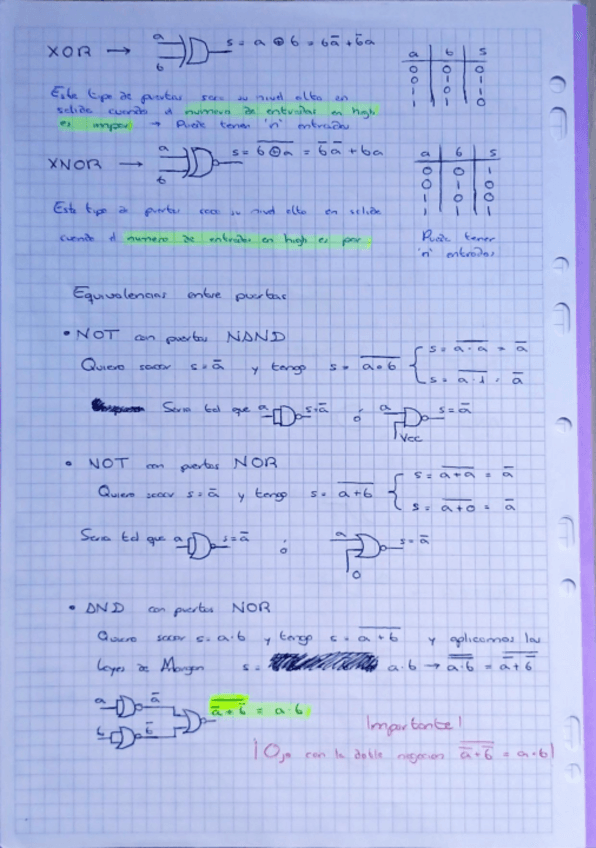 XOR → a b s = a ⊕ b = bā + b̄a
a b s
0 0 0
0 1 1
1 0 1
1 1 0
Este tipo de puertas saca su nivel alto en
salida cuando el numero de entradas en high
es impar → Puede tener 'n' entradas
XNOR → a b s = \overline{b ⊕ a} = b̄ā + ba
a b s
0 0 1
0 1 0
1 0 0
1 1 1
Este tipo de puertas saca su nivel alto en salida
cuando el numero de entradas en high es par.
Puede tener
'n' entradas
Equivalencias entre puertas
• NOT con puertas NAND
Quiero sacar s = ā y tengo s = \overline{a · b} { s = \overline{a · a} = ā
s = \overline{a · 1} = ā
Seria tal que a s = ā ó a s = ā
Vcc
• NOT con puertas NOR
Quiero sacar s = ā y tengo s = \overline{a + b} { s = \overline{a + a} = ā
s = \overline{a + 0} = ā
Seria tal que a s = ā ó a s = ā
0
• AND con puertas NOR
Quiero sacar s = a · b y tengo s = \overline{a + b} y aplicamos las
Leyes de Morgan s = a · b → \overline{\overline{a · b}} = \overline{ā + b̄}
a ā \overline{ā + b̄} = a · b
b b̄
Importante!
¡Ojo con la doble negacion \overline{ā + b̄} = a · b!